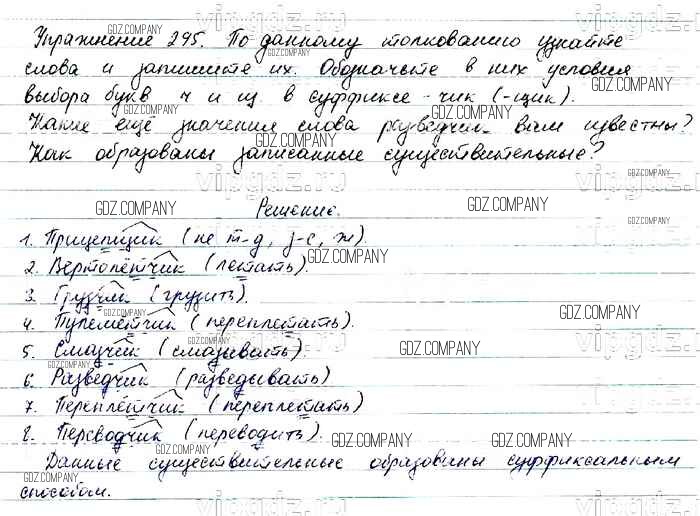 Упражнение 295. По данному толкованию узнайте
слова и запишите их. Обозначьте в них условия
выбора букв ч и щ в суффиксе -чик (-щик).
Какие ещё значения слова разведчик вам известны?
Как образованы записанные существительные?
Решение.
1. Прицепщик (не т-д, з-с, ж).
2. Вертолётчик (летать).
3. Грузчик (грузить).
4. Пулемётчик (переплетать).
5. Смазчик (смазывать).
6. Разведчик (разведывать)
7. Переплётчик (переплетать)
8. Переводчик (переводить).
Данные существительные образованы суффиксальным
способом.